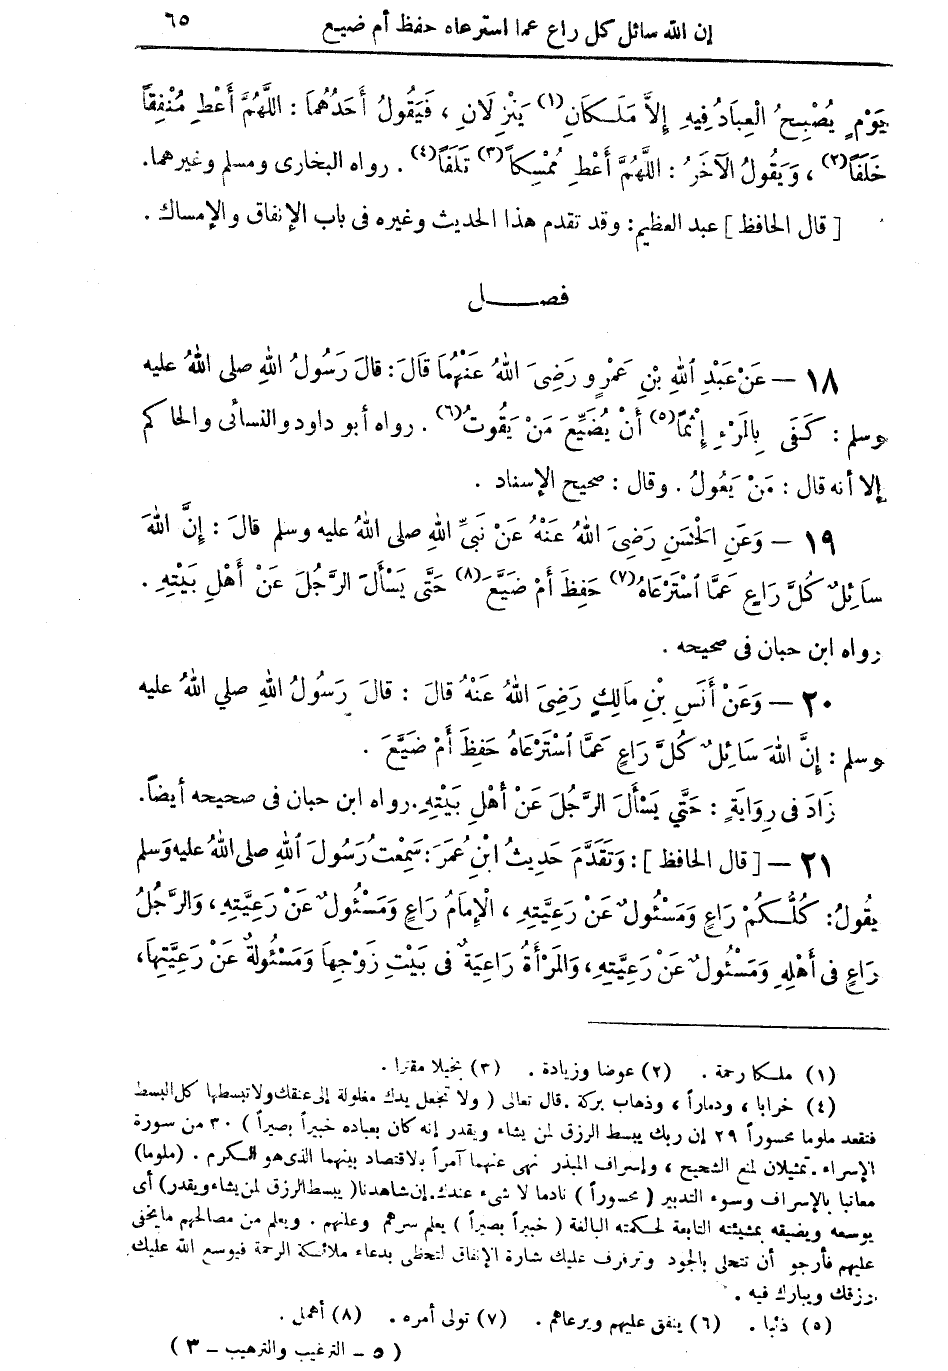 إن الله سائل كل راع عما استرعاه حفظ أم ضيع ٦٥
يَوْمٍ يُصْبِحُ الْعِبَادُ فِيهِ إِلاَّ مَلَكَانِ(١) يَنْزِلَانِ ، فَيَقُولُ أَحَدُهُمَا : اللَّهُمَّ أَعْطِ مُنْفِقاً
خَلَفَاً(٢) ، وَيَقُولُ الْآخَرُ : اللَّهُمَّ أَعْطِ مُمْسِكاً(٣) تَلَفَاً(٤) . رواه البخارى ومسلم وغيرهما.
[ قال الحافظ ] عبد العظيم: وقد تقدم هذا الحديث وغيره فى باب الإنفاق والإمساك .
فصـــل
١٨ — عَنْ عَبْدِ اللهِ بْنِ عَمْرٍو رَضِىَ اللهُ عَنْهُمَا قَالَ : قالَ رَسُولُ اللهِ صلى اللهُ عليه
وسلم : كَفَى بِالمَرْءِ إِثْمًا(٥) أَنْ يُضَيِّعَ مَنْ يَقُوتُ(٦) . رواه أبو داود والنسائى والحاكم
إلا أنه قال : مَنْ يَعُولُ . وقال : صحيح الإسناد .
١٩ — وَعَنِ الْحَسَنِ رَضِىَ اللهُ عَنْهُ عَنْ نَبِىِّ اللهِ صلى اللهُ عليه وسلم قالَ : إِنَّ اللهَ
سَائِلٌ كُلَّ رَاعٍ عَمَّا اسْتَرْعَاهُ(٧) حَفِظَ أَمْ ضَيَّعَ(٨) حَتَّى يَسْأَلَ الرَّجُلَ عَنْ أَهْلِ بَيْتِهِ .
رواه ابن حبان فى صحيحه .
٢٠ — وَعَنْ أَنَسِ بْنِ مَالِكٍ رَضِىَ اللهُ عَنْهُ قالَ : قالَ رَسُولُ اللهِ صلي اللهُ عليه
وسلم : إِنَّ اللهَ سَائِلٌ كُلَّ رَاعٍ عَمَّا اسْتَرْعَاهُ حَفِظَ أَمْ ضَيَّعَ .
زَادَ فى رِوَايَةٍ : حَتَّي يَسْأَلَ الرَّجُلَ عَنْ أَهْلِ بَيْتِهِ. رواه ابن حبان فى صحيحه أيضاً.
٢١ — [ قال الحافظ ] : وَتَقَدَّمَ حَدِيثُ ابْنِ عُمَرَ : سَمِعْتُ رَسُولَ اللهِ صلى اللهُ عليه وَسلم
يقُولُ : كُلُّكُمْ رَاعٍ وَمَسْئُولٌ عَنْ رَعِيَّتِهِ ، الْإِمَامُ رَاعٍ وَمَسْئُولٌ عَنْ رَعِيَّتِهِ ، وَالرَّجُلُ
رَاعٍ فى أَهْلِهِ وَمَسْئُولٌ عَنْ رَعِيَّتِهِ، وَالمَرْأَةُ رَاعِيَةٌ فى بَيْتِ زَوْجِهَا وَمَسْئُولَةٌ عَنْ رَعِيَّتِهَا،
(١) ملكا رحمة . (٢) عوضا وزيادة . (٣) بخيلا مقترا .
(٤) خرابا ، ودماراً ، وذهاب بركة . قال تعالى ( ولا تجعل يدك مغلولة إلى عنقك ولا تبسطها كل البسط
فتقعد ملوما محسوراً ٢٩ إن ربك يبسط الرزق لمن يشاء ويقدر إنه كان بعباده خبيراً بصيراً ) ٣٠ من سورة
الإسراء . تمثيلان لمنع الشحيح ، وإسراف المبذر نهى عنهما آمراً بالاقتصاد بينهما الذى هو الكرم . (ملوما)
معاتبا بالإسراف وسوء التدبير ( محسوراً ) نادما لا شىء عندك. إن شاهدنا ( يبسط الرزق لمن يشاء ويقدر) أى
يوسعه ويضيقه بمشيئته التابعة لحكمته البالغة ( خبيراً بصيراً ) يعلم سرهم وعلنهم . ويعلم من مصالحهم ما يخفى
عليهم فأرجو أن تتحلى بالجود وترفرف عليك شارة الإنفاق لتحظى بدعاء ملائكة الرحمة فيوسع الله عليك
رزقك ويبارك فيه .
(٥) ذنبا . (٦) ينفق عليهم ويرعاهم . (٧) تولى أمره . (٨) أهمل .
( ٥ - الترغيب والترهيب - ٣ )